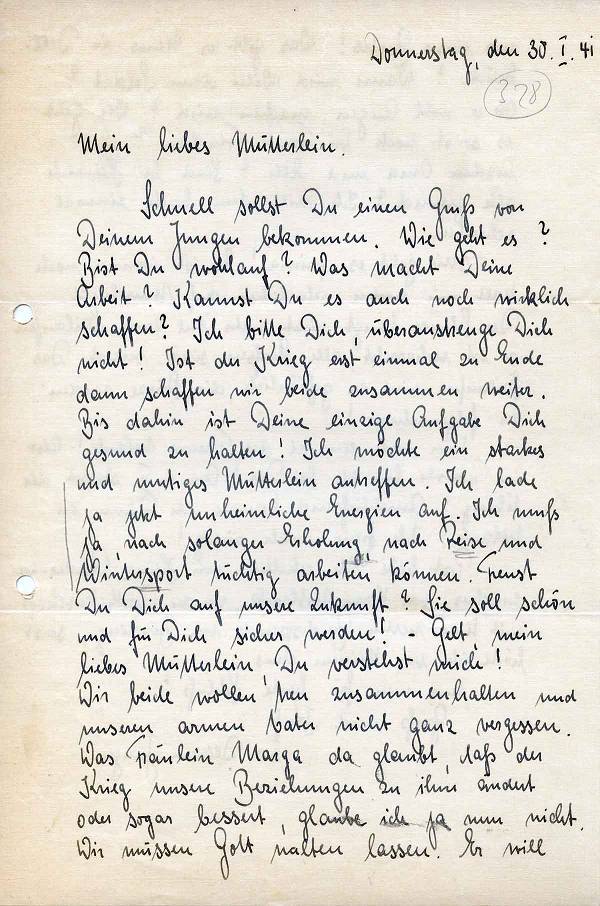 Donnerstag, den 30. I. 41
378
Mein liebes Mütterlein.
Schnell sollst Du einen Gruß von
Deinem Jungen bekommen. Wie geht es?
Bist Du wohlauf? Was macht Deine
Arbeit? Kannst Du es auch noch wirklich
schaffen? Ich bitte Dich, überanstrenge Dich
nicht! Ist der Krieg erst einmal zu Ende
dann schaffen wir beide zusammen weiter.
Bis dahin ist Deine einzige Aufgabe Dich
gesund zu halten! Ich möchte ein starkes
und mutiges Mütterlein antreffen. Ich lade
ja jetzt unheimliche Energien auf. Ich muß
ja nach solanger Erholung, nach Reise und
Wintersport tüchtig arbeiten können. Freust
Du Dich auf unsere Zukunft? Sie soll schön
und für Dich sicher werden! - Gelt, mein
liebes Mütterlein, Du verstehst mich!
Wir beide wollen treu zusammenhalten und
unseren armen Vater nicht ganz vergessen.
Was Fräulein Marga da glaubt, daß der
Krieg unsere Beziehungen zu ihm ändert
oder sogar bessert, glaube ich ja nun nicht.
Wir müssen Gott walten lassen. Er will